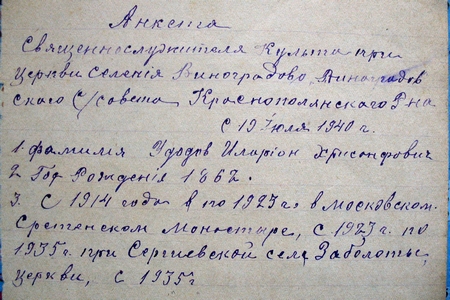 Анкета
Священнослужителя Культа при
Церкви селенія Виноградово, Виноградов
ского С/совета Краснополянского Р-на
с 19 Іюля 1940 г.
1. Фамилия Удодов Иларіон Хрисанфович
2. Год Рожденія 1862.
3. С 1914 года и по 1923 г. в Московском-
Сретенском Монастыре, с 1923 г. по
1935 г при Сергиевской села Заболотье,
Церкви, с 1935 г